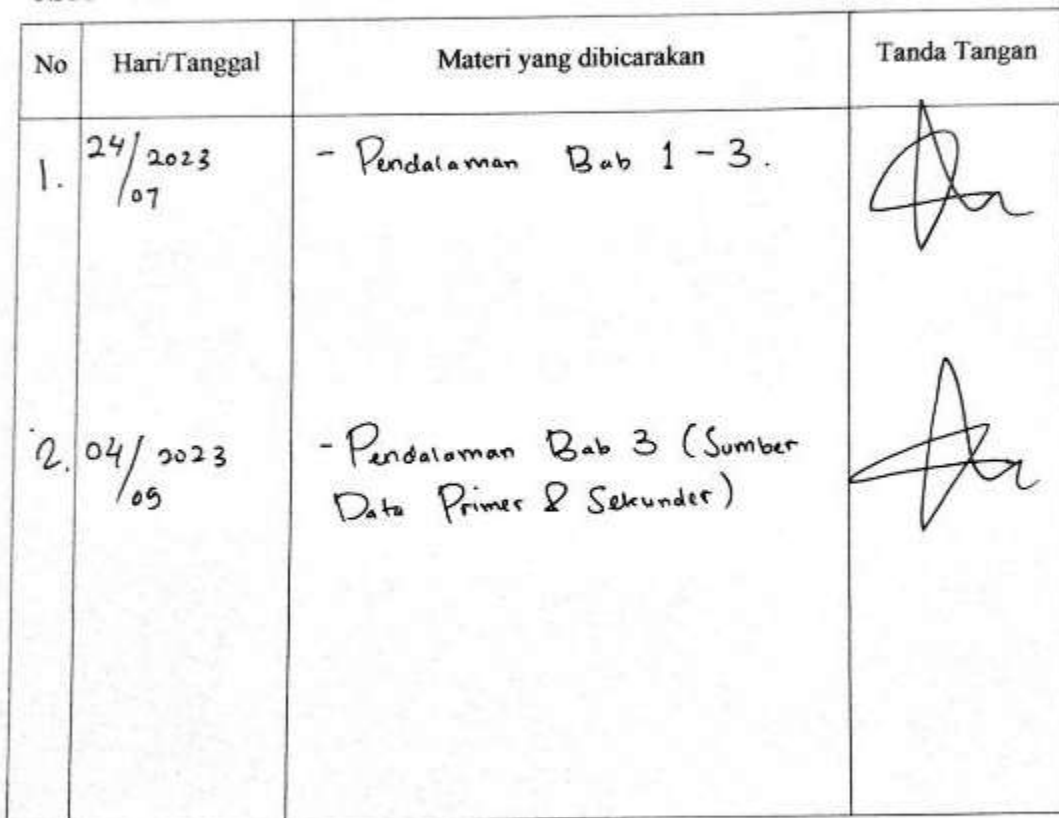 No Hari/Tanggal Materi yang dibicarakan Tanda Tangan
1. 24/07 2023 - Pendalaman Bab 1 - 3.
2. 04/09 2023 - Pendalaman Bab 3 (Sumber
Data Primer & Sekunder)